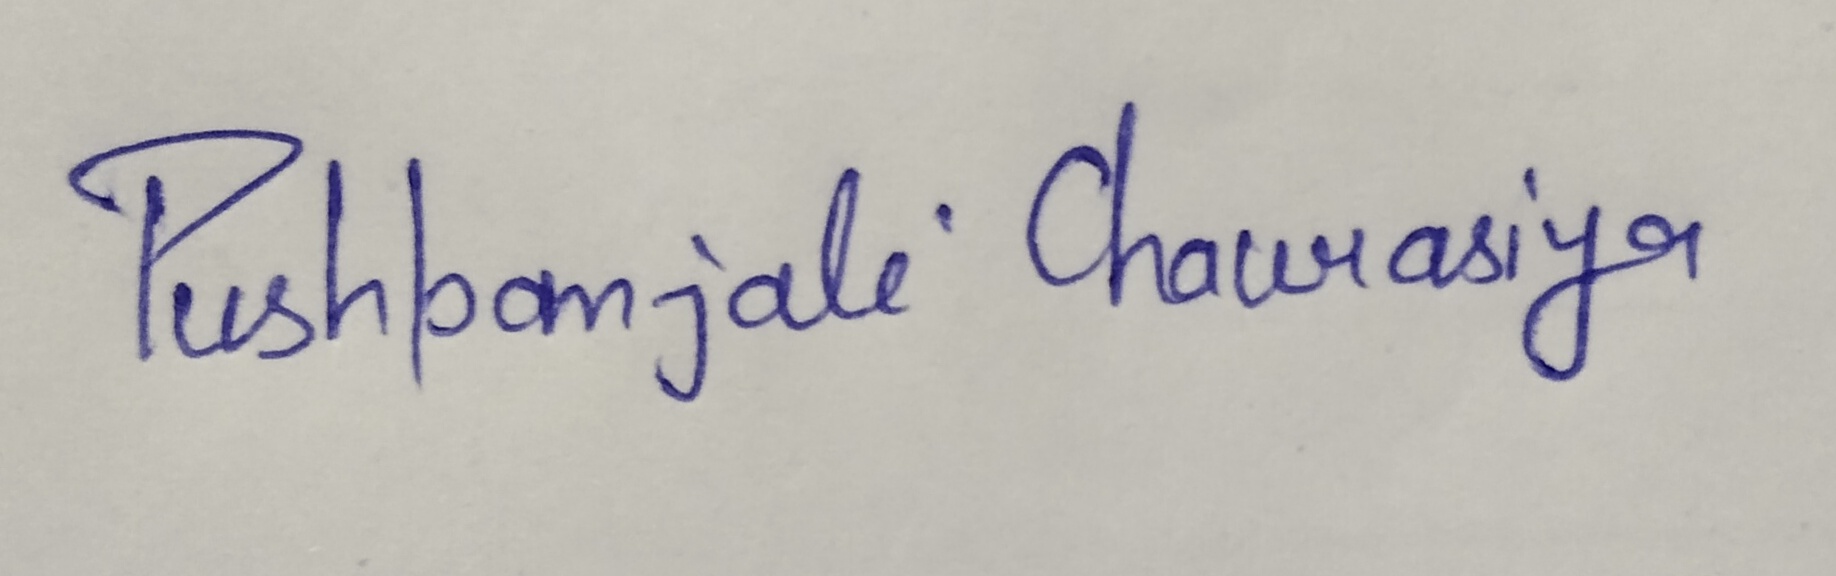 Pushpanjali Chaurasiya